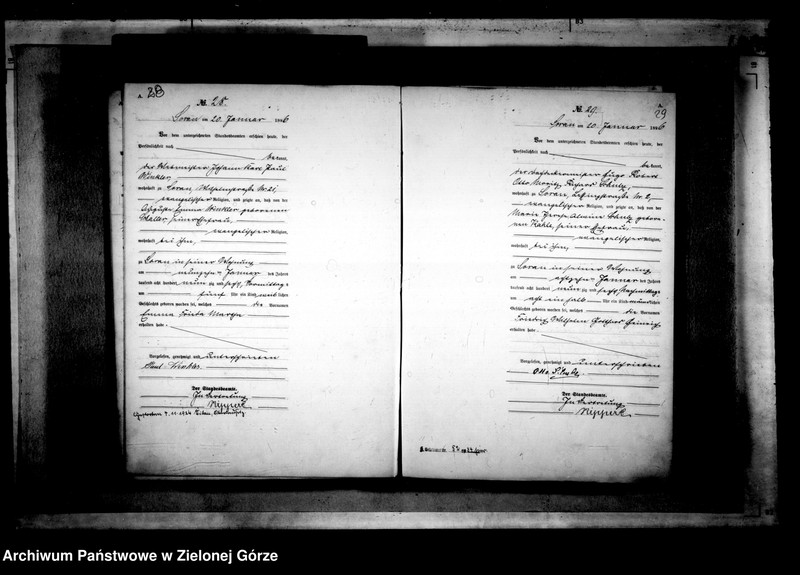 A 28
№ 28.
Sorau am 20. Januar 1896
Vor dem unterzeichneten Standesbeamten erschien heute, der
Persönlichkeit nach
bekannt,
der Johann Karl Paul
Winkler,
wohnhaft zu Sorau, Wilhelmstraße Nr. 21,
evangelischer Religion, und zeigte an, daß von der
Auguste Emma Winkler geborenen
seiner Ehefrau,
evangelischer Religion,
wohnhaft bei ihm,
zu Sorau in seiner Wohnung
am neunzehnten Januar des Jahres
tausend acht hundert neunzig und sechs, Vormittags
um fünf Uhr ein Kind weiblichen
Geschlechts geboren worden sei, welches die Vornamen
Emma Frida Martha
erhalten habe.
Vorgelesen, genehmigt und unterschrieben
Paul Winkler.
Der Standesbeamte.
In Vertretung
Nippert.
A 29
№ 29.
Sorau am 20. Januar 1896
Vor dem unterzeichneten Standesbeamten erschien heute, der
Persönlichkeit nach
bekannt,
der Hugo Robert
Otto Moritz Schulz,
wohnhaft zu Sorau, Nr. 2,
evangelischer Religion, und zeigte an, daß von der
Maria Schulz gebore-
nen Kahle, seiner Ehefrau,
evangelischer Religion,
wohnhaft bei ihm,
zu Sorau in seiner Wohnung
am achtzehnten Januar des Jahres
tausend acht hundert neunzig und sechs Nachmittags
um acht ein halb Uhr ein Kind männlichen
Geschlechts geboren worden sei, welches die Vornamen
Friedrich Wilhelm Heinrich
erhalten habe.
Vorgelesen, genehmigt und unterschrieben
Otto Schulz.
Der Standesbeamte.
In Vertretung
Nippert.
Archiwum Państwowe w Zielonej Górze